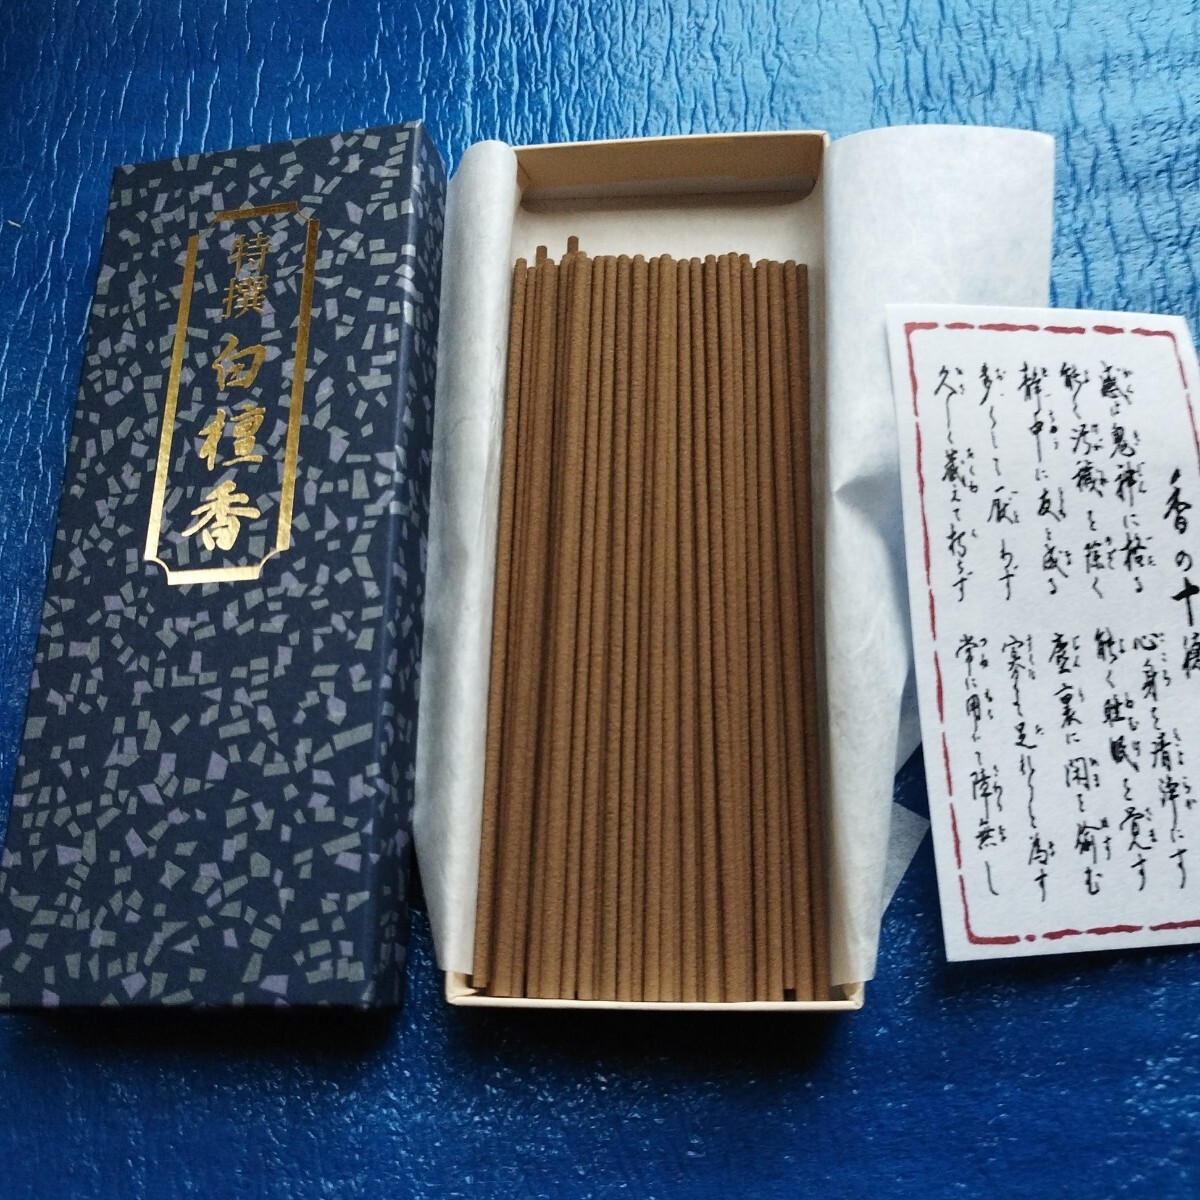 特撰
白檀香
香の十徳
感は鬼神に格る
心身を清浄にす
能く汚穢を除く
能く睡眠を覚す
静中に友と成る
塵裏に閑を偸む
多くして厭わず
足れりと為す
久しく蔵えて朽ちず
常に用いて障無し